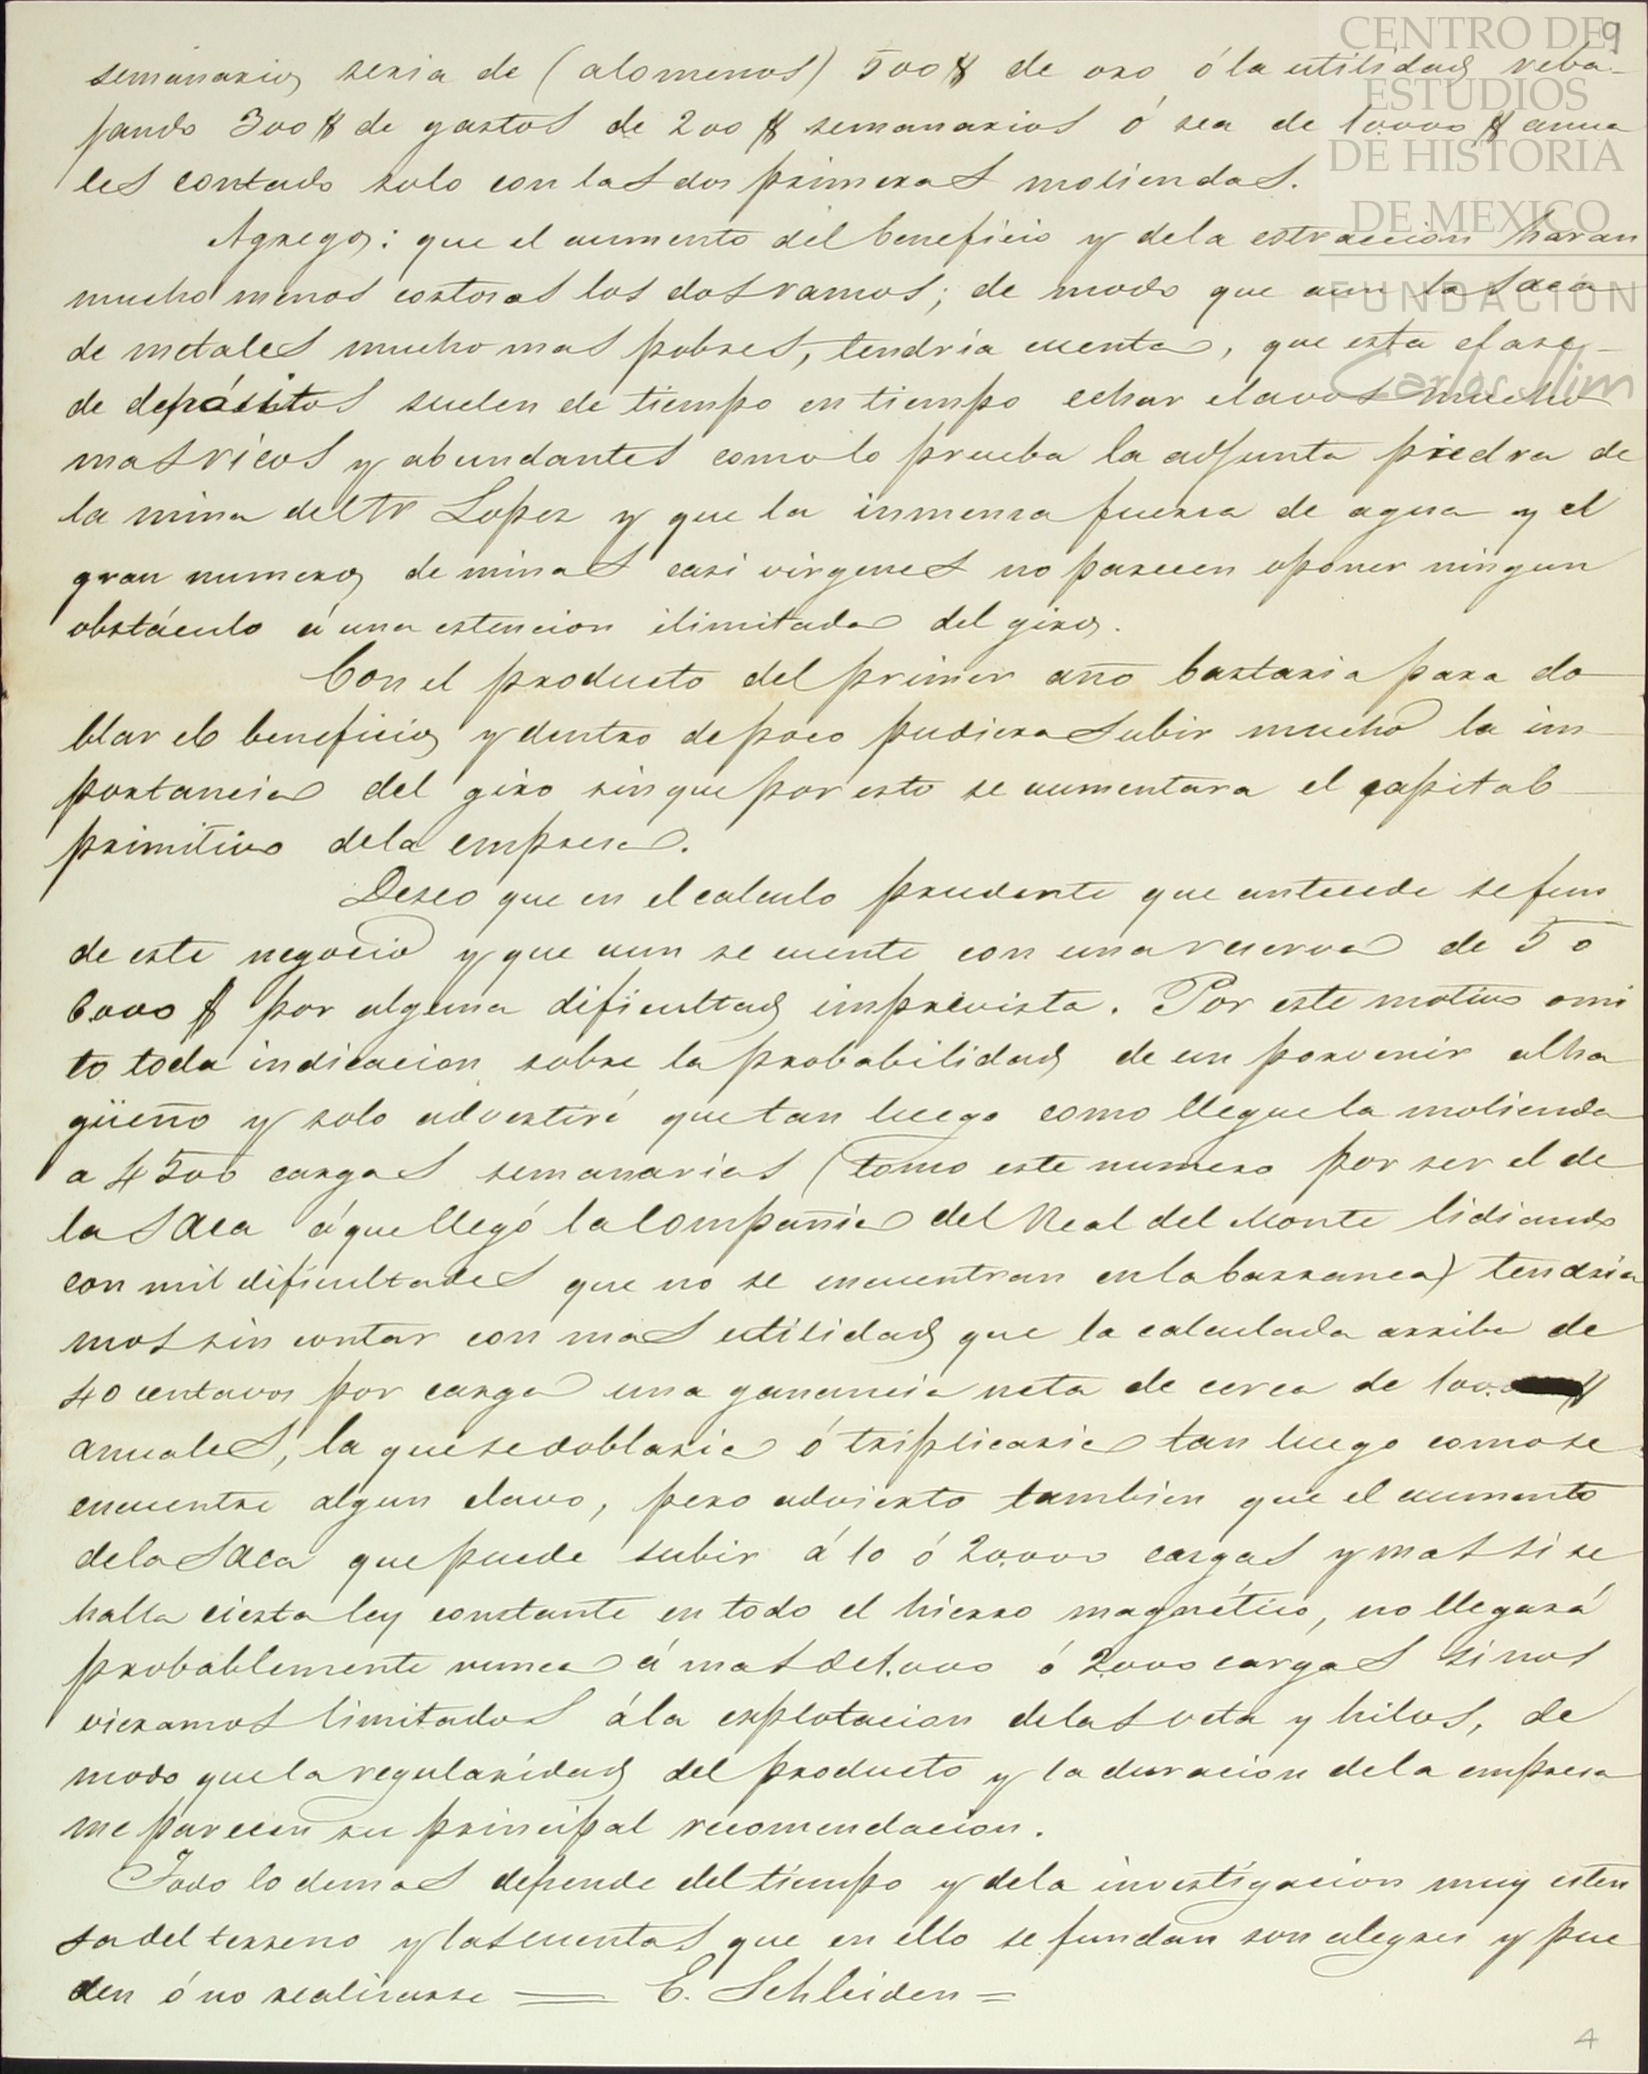 CENTRO DE
ESTUDIOS
DE HISTORIA
DE MEXICO
FUNDACION
Carlos Slim
9
semanario, seria de (alomenos) 500$ de oro, ó la utilidad reba-
jando 300$ de gastos de 200$ semanarios ó sea de 10.000$ anua
les contado solo con las dos primeras moliendas.
Agrego: que el aumento del beneficio y dela estraccion haran
mucho menos costosos los dos ramos; de modo que aun la saca
de metales mucho mas pobres, tendria cuenta, que esta clase
de depósitos suelen de tiempo en tiempo echar clavos mucho
mas ricos y abundantes como lo prueba la adjunta piedra de
la mina del Sr Lopez y que la inmensa fuersa de agua y el
gran numero de minas casi virgenes no parecen oponer ningun
obstáculo á una estencion ilimitada del giro.
Con el producto del primer año bastaria para do
blar el beneficio, y dentro de poco pudiera subir mucho la im
portancia del giro sin que por esto se aumentara el capital
primitivo dela empresa.
Deseo que en el calculo prudente que antecede se fun
de este negocio y que aun se cuente con una reserva de 5 o
6.000 $ por alguna dificultad imprevista. Por este motivo omi
to toda indicacion sobre la probabilidad de un porvenir alha
güeño y solo advertiré que tan luego como llegue la molienda
a 4500 cargas semanarias (tomo este numero por ser el de
la saca á que llegó la Compañia del Real del Monte lidiando
con mil dificultades que no se encuentran en la barranca) tendria
mos sin contar con mas utilidad que la calculada arriba de
40 centavos por carga una ganancia neta de cerca de 100. $
anuales, la que se doblaria ó triplicaria tan luego como se
encuentre algun clavo, pero advierto tambien que el aumento
dela saca que puede subir á 10 ó 20.000 cargas y mas si se
halla cierta ley constante en todo el hierro magnético, no llegará
probablemente nunca á mas de 1.000 ó 2.000 cargas si nos
vieramos limitados á la explotacion delas veta y hilos, de
modo que la regularidad del producto y la duracion dela empresa
me parecen su principal recomendacion.
Todo lo demas depende del tiempo y dela investigacion muy esten
sa del terreno y las cuentas que en ello se fundan son alegres y pue
den ó no realizarse = E. Schleiden =
4